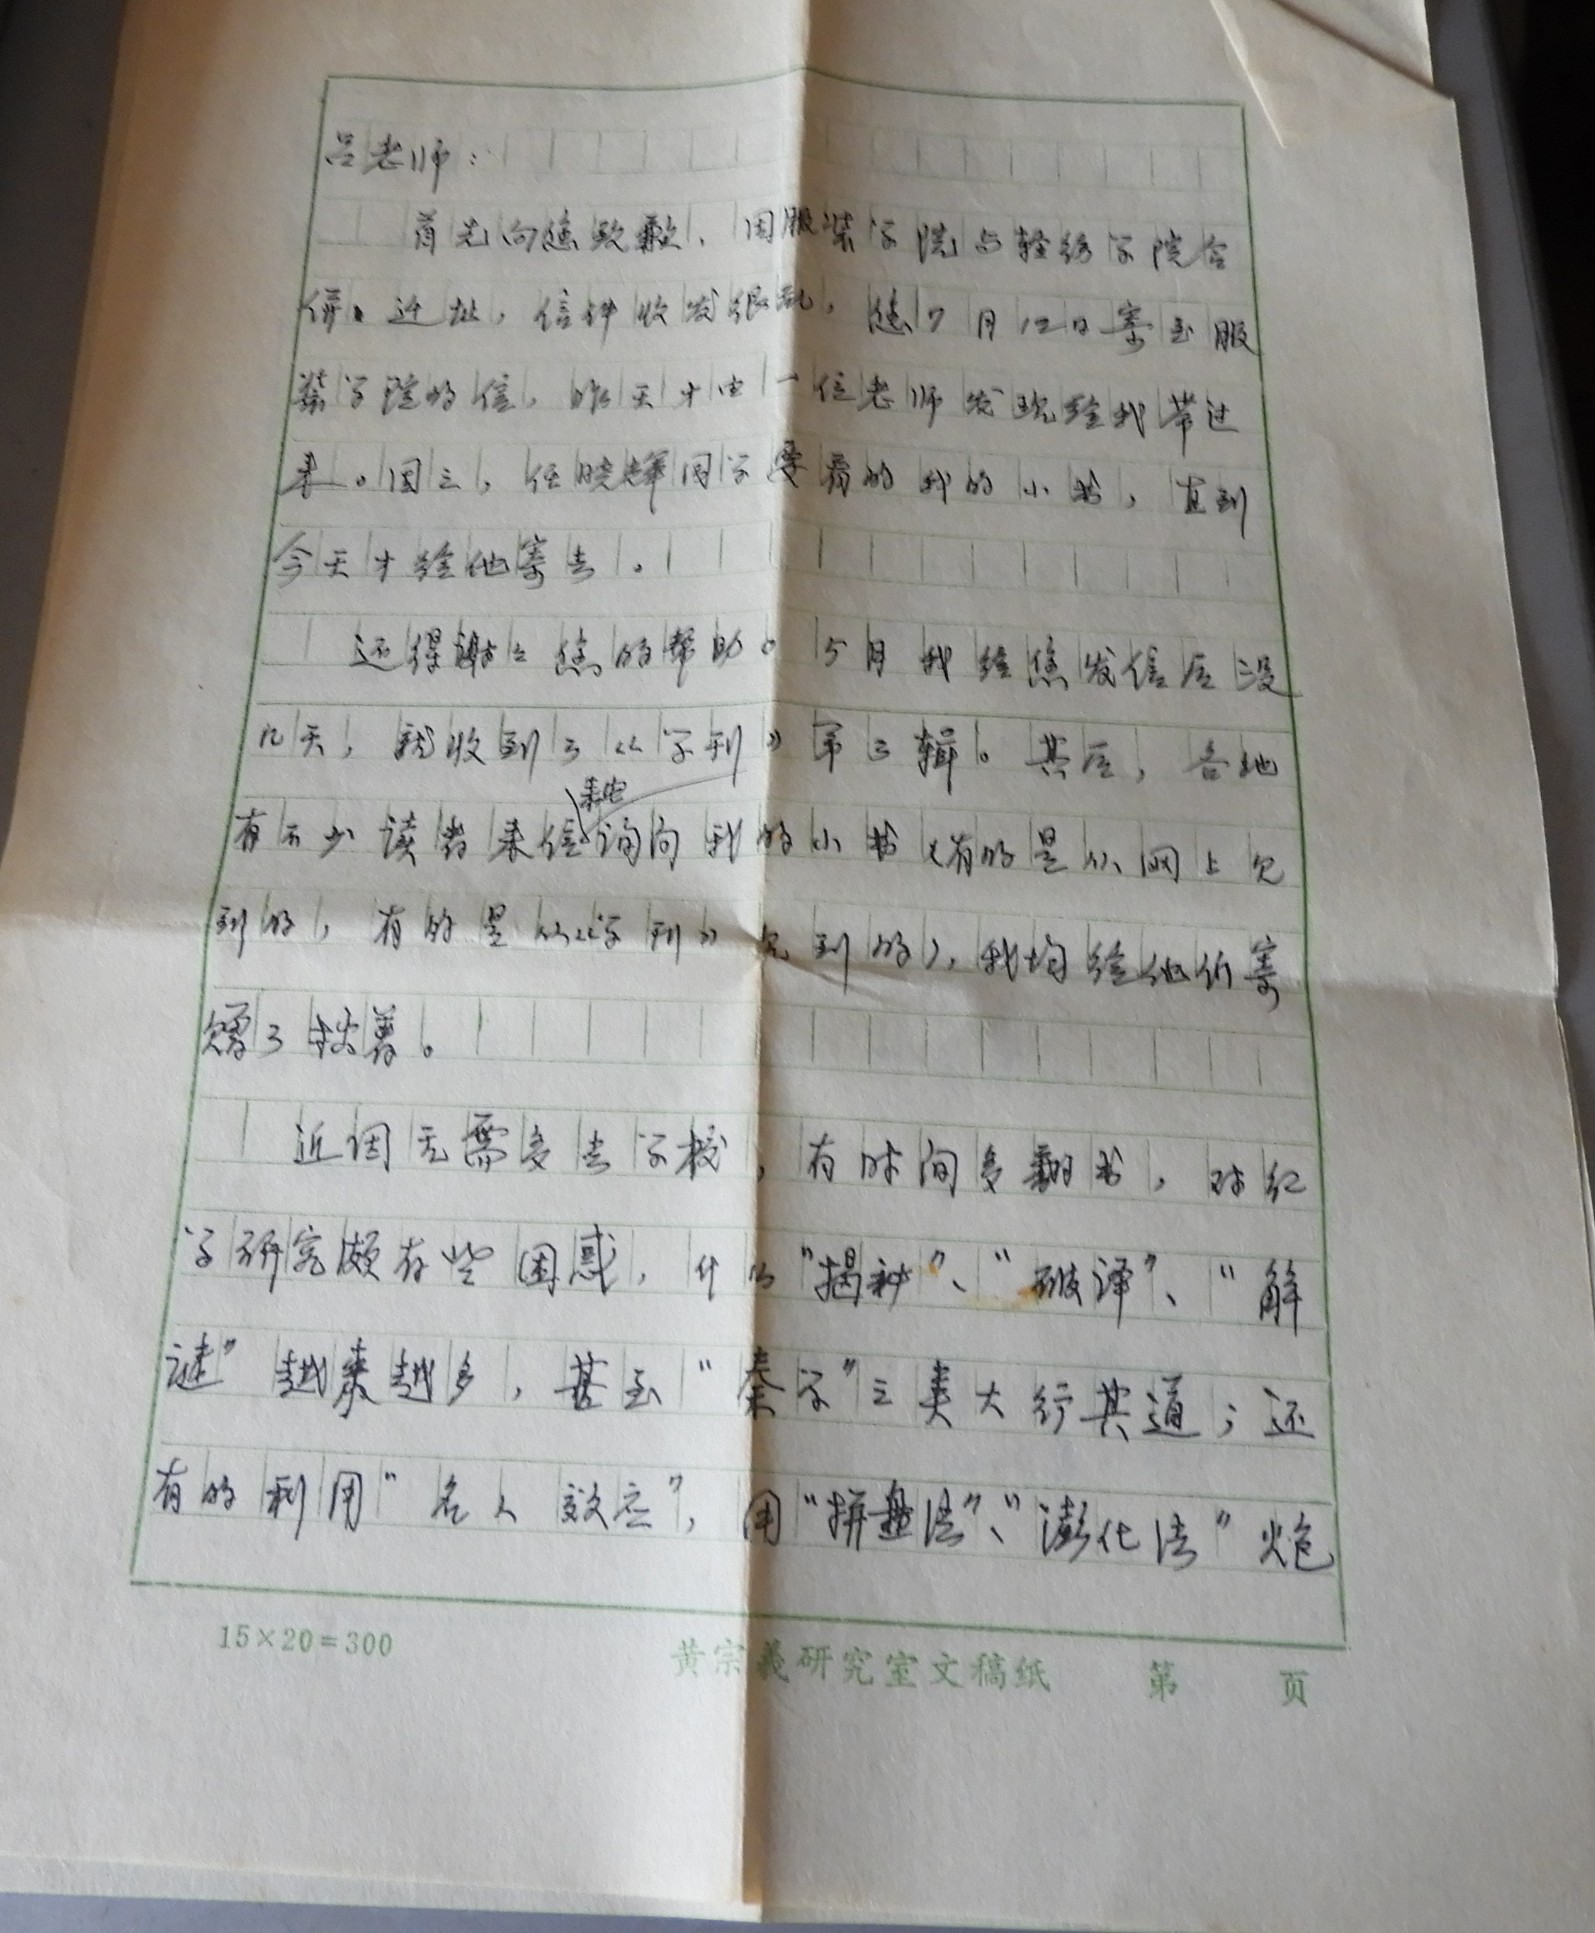 吕老师：
首先向您致歉、因服装学院与轻纺学院合
併、迁址，信件收发很乱，您7月12日寄至服
装学院的信，昨天才由一位老师发现给我带过
来。因之，任晓辉同学要看的我的小书，直到
今天才给他寄去。
还得谢谢您的帮助。5月我给您发信后没
几天，就收到了《学刊》第三辑。其后，各地
来电
有不少读者来信询问我的小书（有的是从网上见
到的，有的是从《学刊》见到的），我均给他们寄
赠了拙著。
近因无需多去学校，有时间多翻书，对红
学研究颇有些困惑，什么“揭秘”、“破译”、“解
谜”越来越多，甚至“秦学”之类大行其道；还
有的利用“名人效应”，用“拼盘法”、“澎化法”炮
15×20=300
黄宗羲研究室文稿纸 第 页